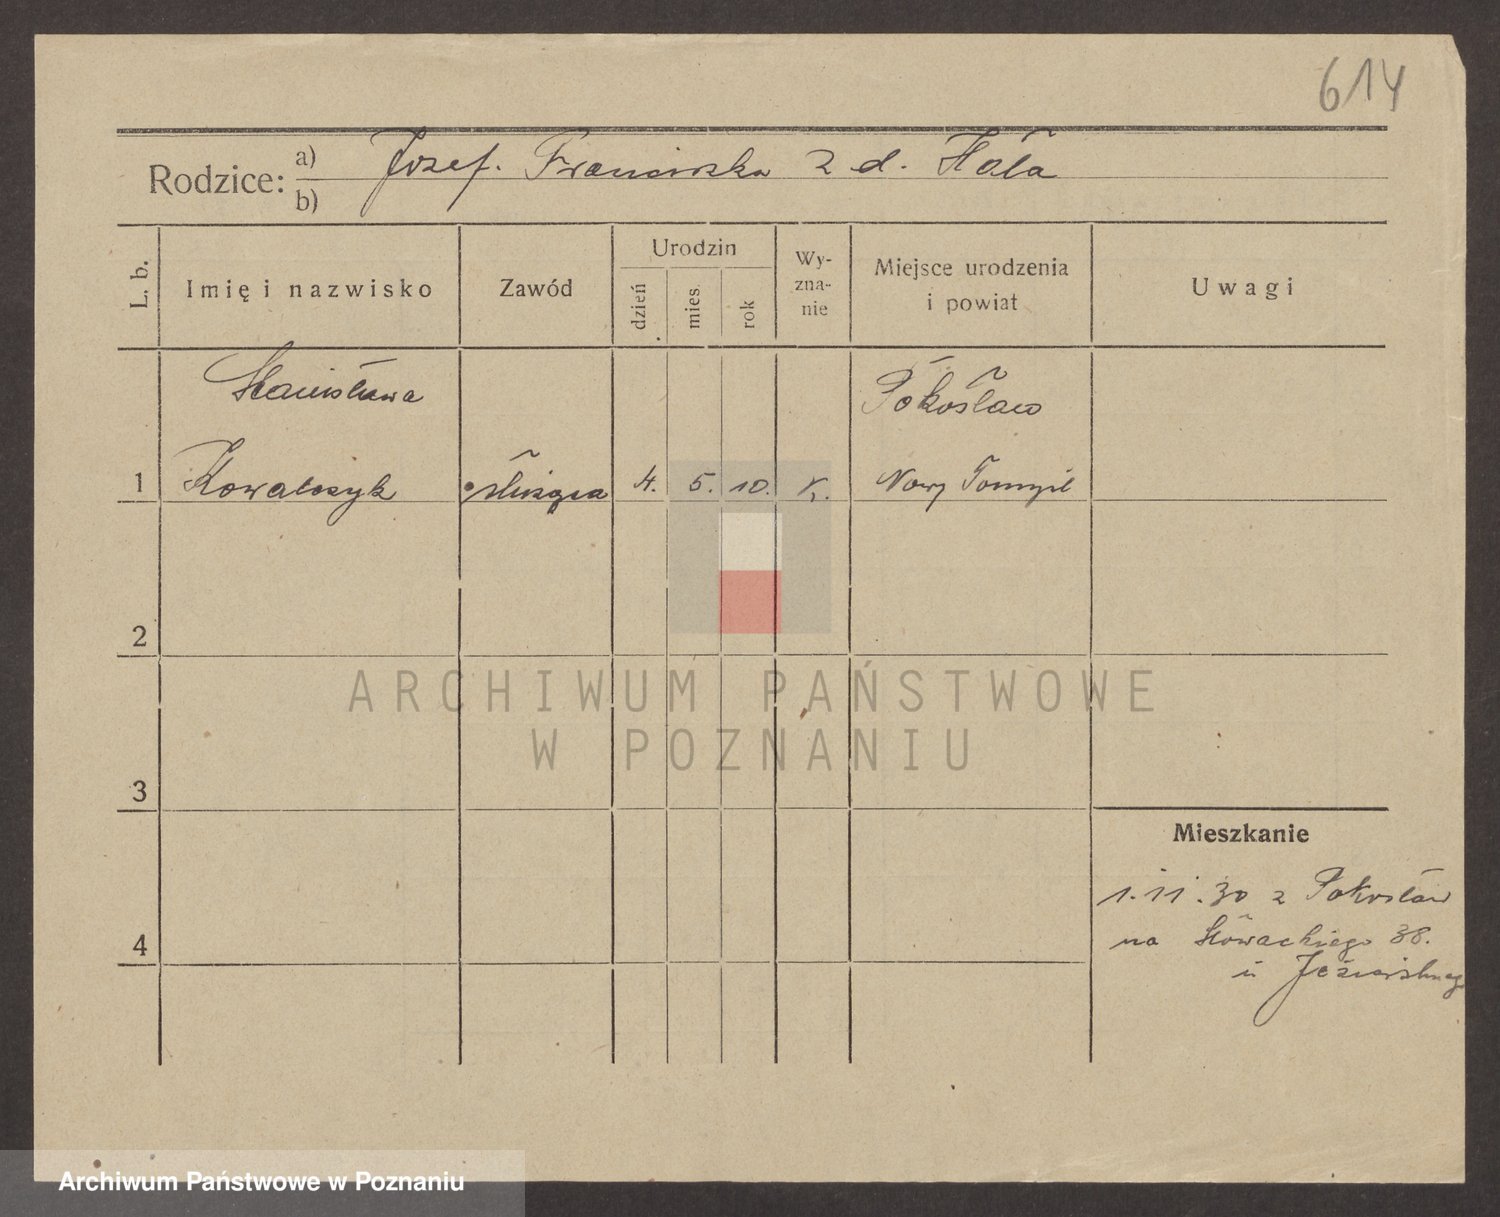 614
Rodzice: a) b) Józef. Franciszka z d. Hała
L. b.
Imię i nazwisko
Zawód
Urodzin
dzień
mies.
rok
Wy-
zna-
nie
Miejsce urodzenia
i powiat
Uwagi
Stanisława
Pokosław
1 Kowalczyk służąca 4. 5. 10. k. Nowy Tomyśl
2
ARCHIWUM PAŃSTWOWE
W POZNANIU
3
Mieszkanie
1.11.30 z Pokosław
4
na Słowackiego 38.
u
Archiwum Państwowe w Poznaniu